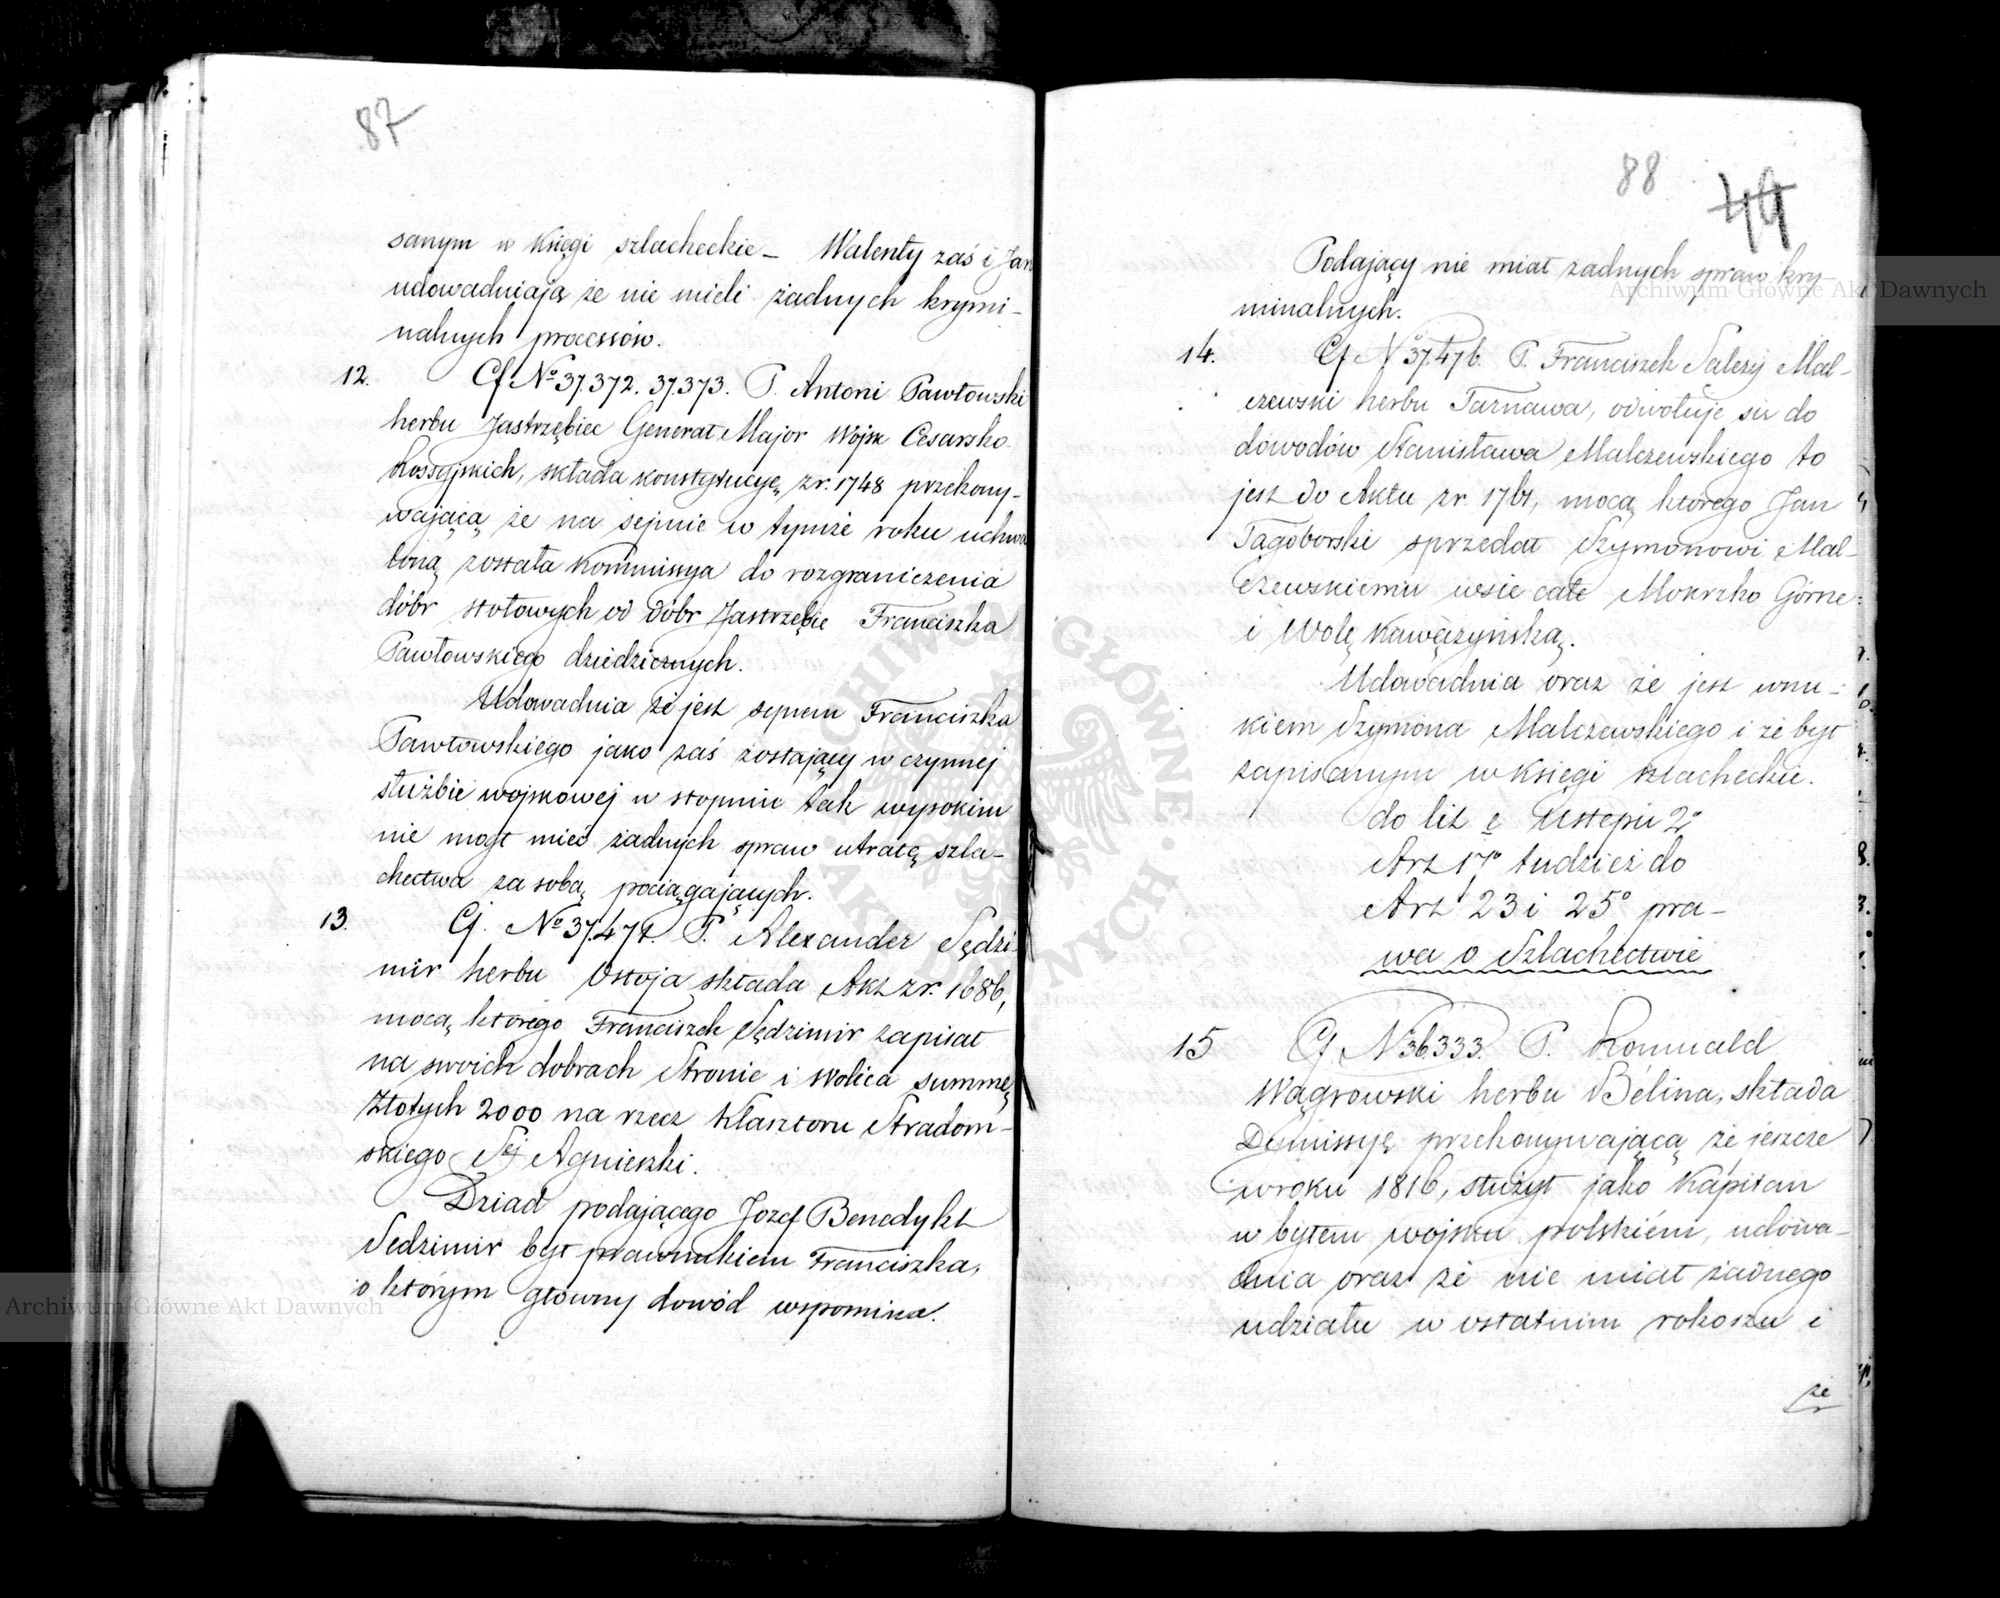 87
sanym w Księgi szlacheckie – Walenty zaś i Jan
udowadniają że nie mieli żadnych krymi-
nalnych processów.
12. Cf № 37.372. 37.373. P. Antoni Pawłowski
herbu Jastrzębiec Generał Major Wojsk Cesarsko
Rossyjskich, składa konstytucyę z r. 1748 przekony-
wającą że na sejmie w tymże roku uchwa
loną została Kommissya do rozgraniczenia
dóbr stołowych od dóbr Jastrzębie Franciszka
Pawłowskiego dziedzicznych.
Udowadnia że jest synem Franciszka
Pawłowskiego jako zaś zostający w czynnej
służbie wojskowej w stopniu tak wysokim
nie mógł mieć żadnych spraw utratę szla-
chectwa za sobą pociągających.
13. Cf. № 37.471. P. Alexander Sędzi-
mir herbu Ostoja składa Akt z r. 1686,
mocą którego Franciszek Sędzimir zapisał
na swoich dobrach Stronie i Wolica summę
Złotych 2000 na rzecz Klasztoru Stradom-
skiego Sej Agnieszki.
Dziad podającego Jozef Benedykt
Sedzimir był prawnukiem Franciszka,
o którym główny dowód wspomina.
88
44
Podający nie miał żadnych spraw kry-
minalnych.
14. Cf № 37.476. P. Franciszek Salezy Mal-
czewski herbu Tarnawa, odwołuje się do
dowodów Stanisława Malczewskiego to
jest do Aktu z r. 1761, mocą którego Jan
Tagoborski sprzedał Szymonowi Mal-
czewskiemu wsie całe Mokrzko Górne
i Wolę Kawęczyńską.
Udowadnia oraz że jest wnu-
kiem Szymona Malczewskiego i że był
zapisanym w Księgi szlacheckie.
do lit e Ustępu 2º
Art 17º tudzież do
Art 23 i 25º pra-
wa o Szlachectwie
15 Cf № 36.333. P. Romuald
Wągrowski herbu Bélina, składa
Dymissyę przekonywającą że jeszcze
w roku 1816, służył jako Kapitan
w byłem wojsku polskiém, udowa-
dnia oraz że nie miał żadnego
udziału w ostatnim rokoszu i
że
Archiwum Główne Akt Dawnych
Archiwum Główne Akt Dawnych